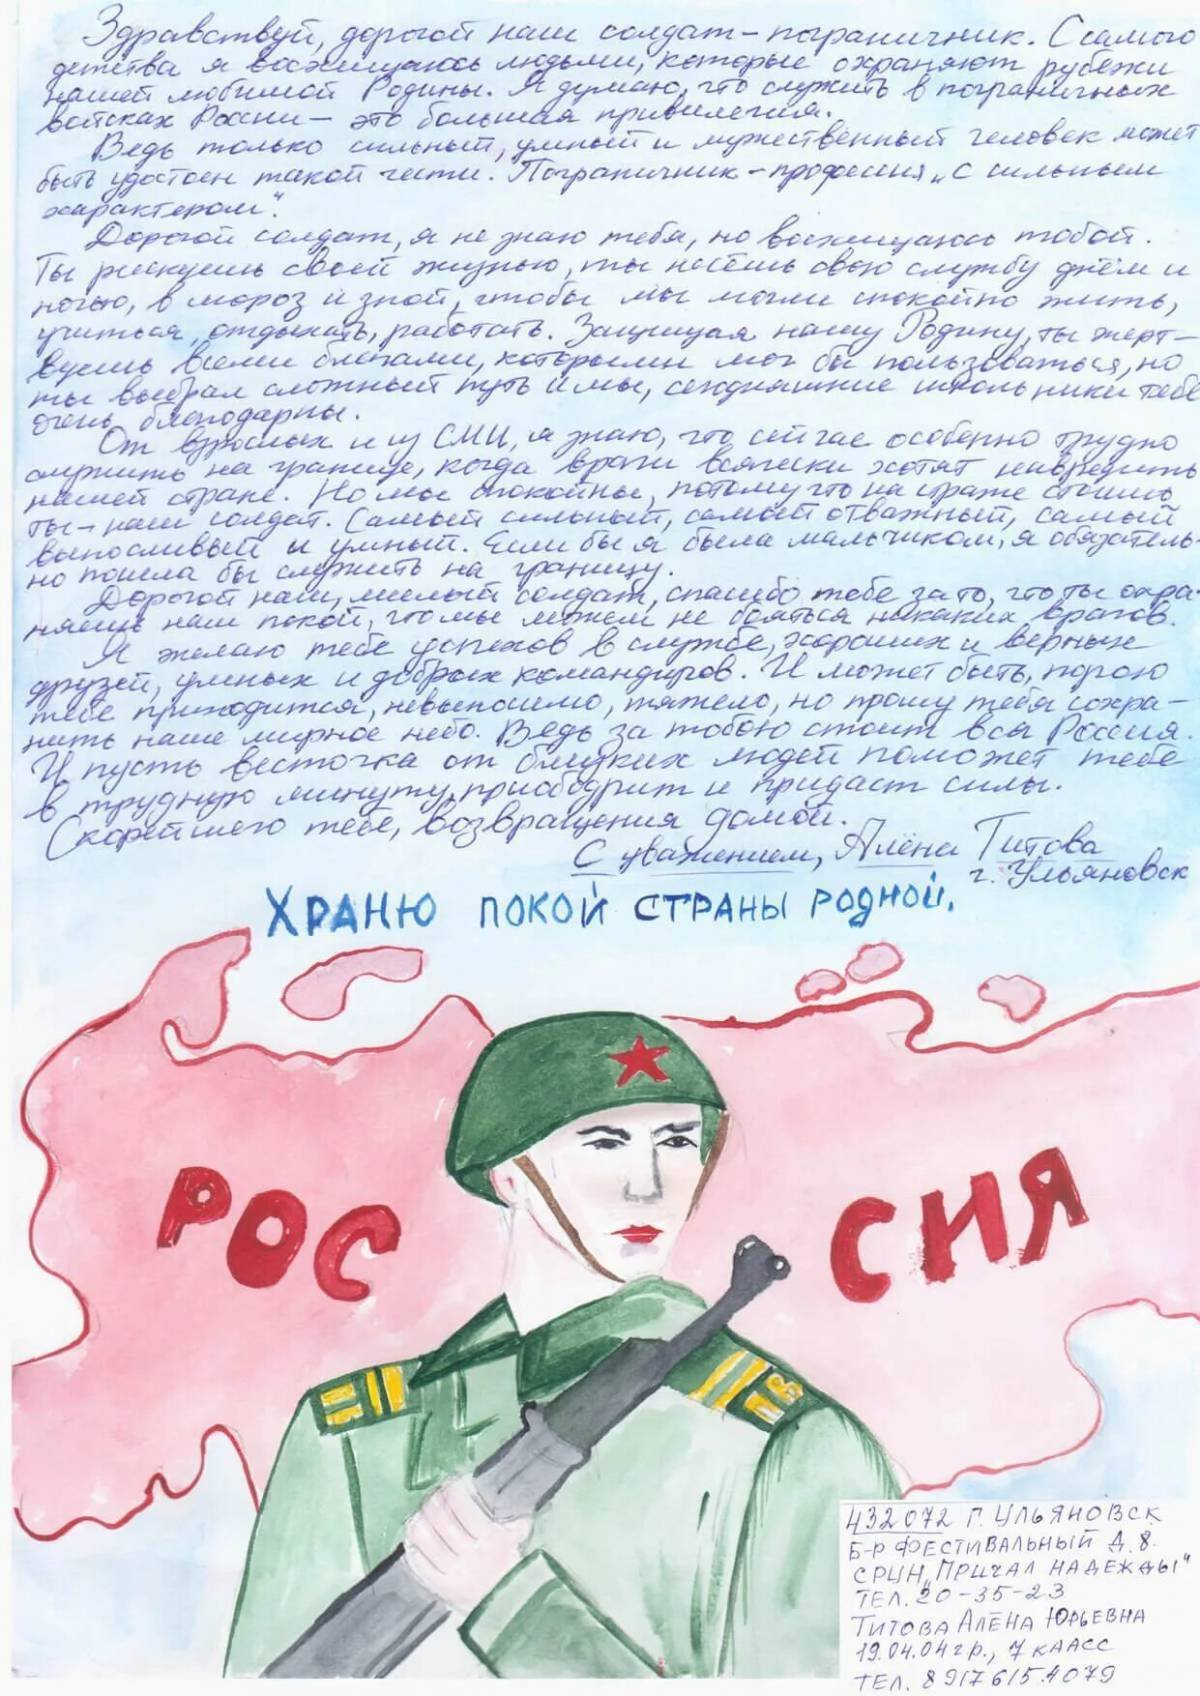 Здравствуй, дорогой наш солдат-пограничник. С самого
детства я восхищаюсь людьми, которые охраняют рубежи
нашей любимой Родины. Я думаю, что служить в пограничных
войсках России – это большая привилегия.
Ведь только сильный, умный и мужественный человек может
быть удостоен такой чести. Пограничник – профессия „с сильным
характером“.
Дорогой солдат, я не знаю тебя, но восхищаюсь тобой.
Ты рискуешь своей жизнью, ты несёшь свою службу днём и
ночью, в мороз и зной, чтобы мы могли спокойно жить,
учиться, отдыхать, работать. Защищая нашу Родину, ты жерт-
вуешь всеми благами, которыми мог бы пользоваться, но
ты выбрал сложный путь и мы, сегодняшние школьники тебе
очень благодарны.
От взрослых и из СМИ, я знаю, что сейчас особенно трудно
служить на границе, когда враги всячески хотят навредить
нашей стране. Но мы спокойны, потому что на страже стоишь
ты – наш солдат. Самый сильный, самый отважный, самый
выносливый и умный. Если бы я была мальчиком, я обязатель-
но пошла бы служить на границу.
Дорогой наш, милый солдат, спасибо тебе за то, что ты охра-
няешь наш покой, что мы можем не бояться никаких врагов.
Я желаю тебе успехов в службе, хороших и верных
друзей, умных и добрых командиров. И может быть, порою
тебе приходится, невыносимо, тяжело, но прошу тебя сохра-
нить наше мирное небо. Ведь за тобою стоит вся Россия.
И пусть весточка от близких людей поможет тебе
в трудную минуту, приободрит и придаст силы.
Скорейшего тебе, возвращения домой.
С уважением, Алёна Титова
г. Ульяновск
ХРАНЮ ПОКОЙ СТРАНЫ РОДНОЙ.
РОССИЯ
ПВ
432072 Г. УЛЬЯНОВСК
Б-Р ФЕСТИВАЛЬНЫЙ Д. 8.
СРЦН „ПРИЧАЛ НАДЕЖДЫ"
ТЕЛ. 20-35-23
ТИТОВА АЛЁНА ЮРЬЕВНА
19.04.04 г.р., 7 КЛАСС
ТЕЛ. 89176154079